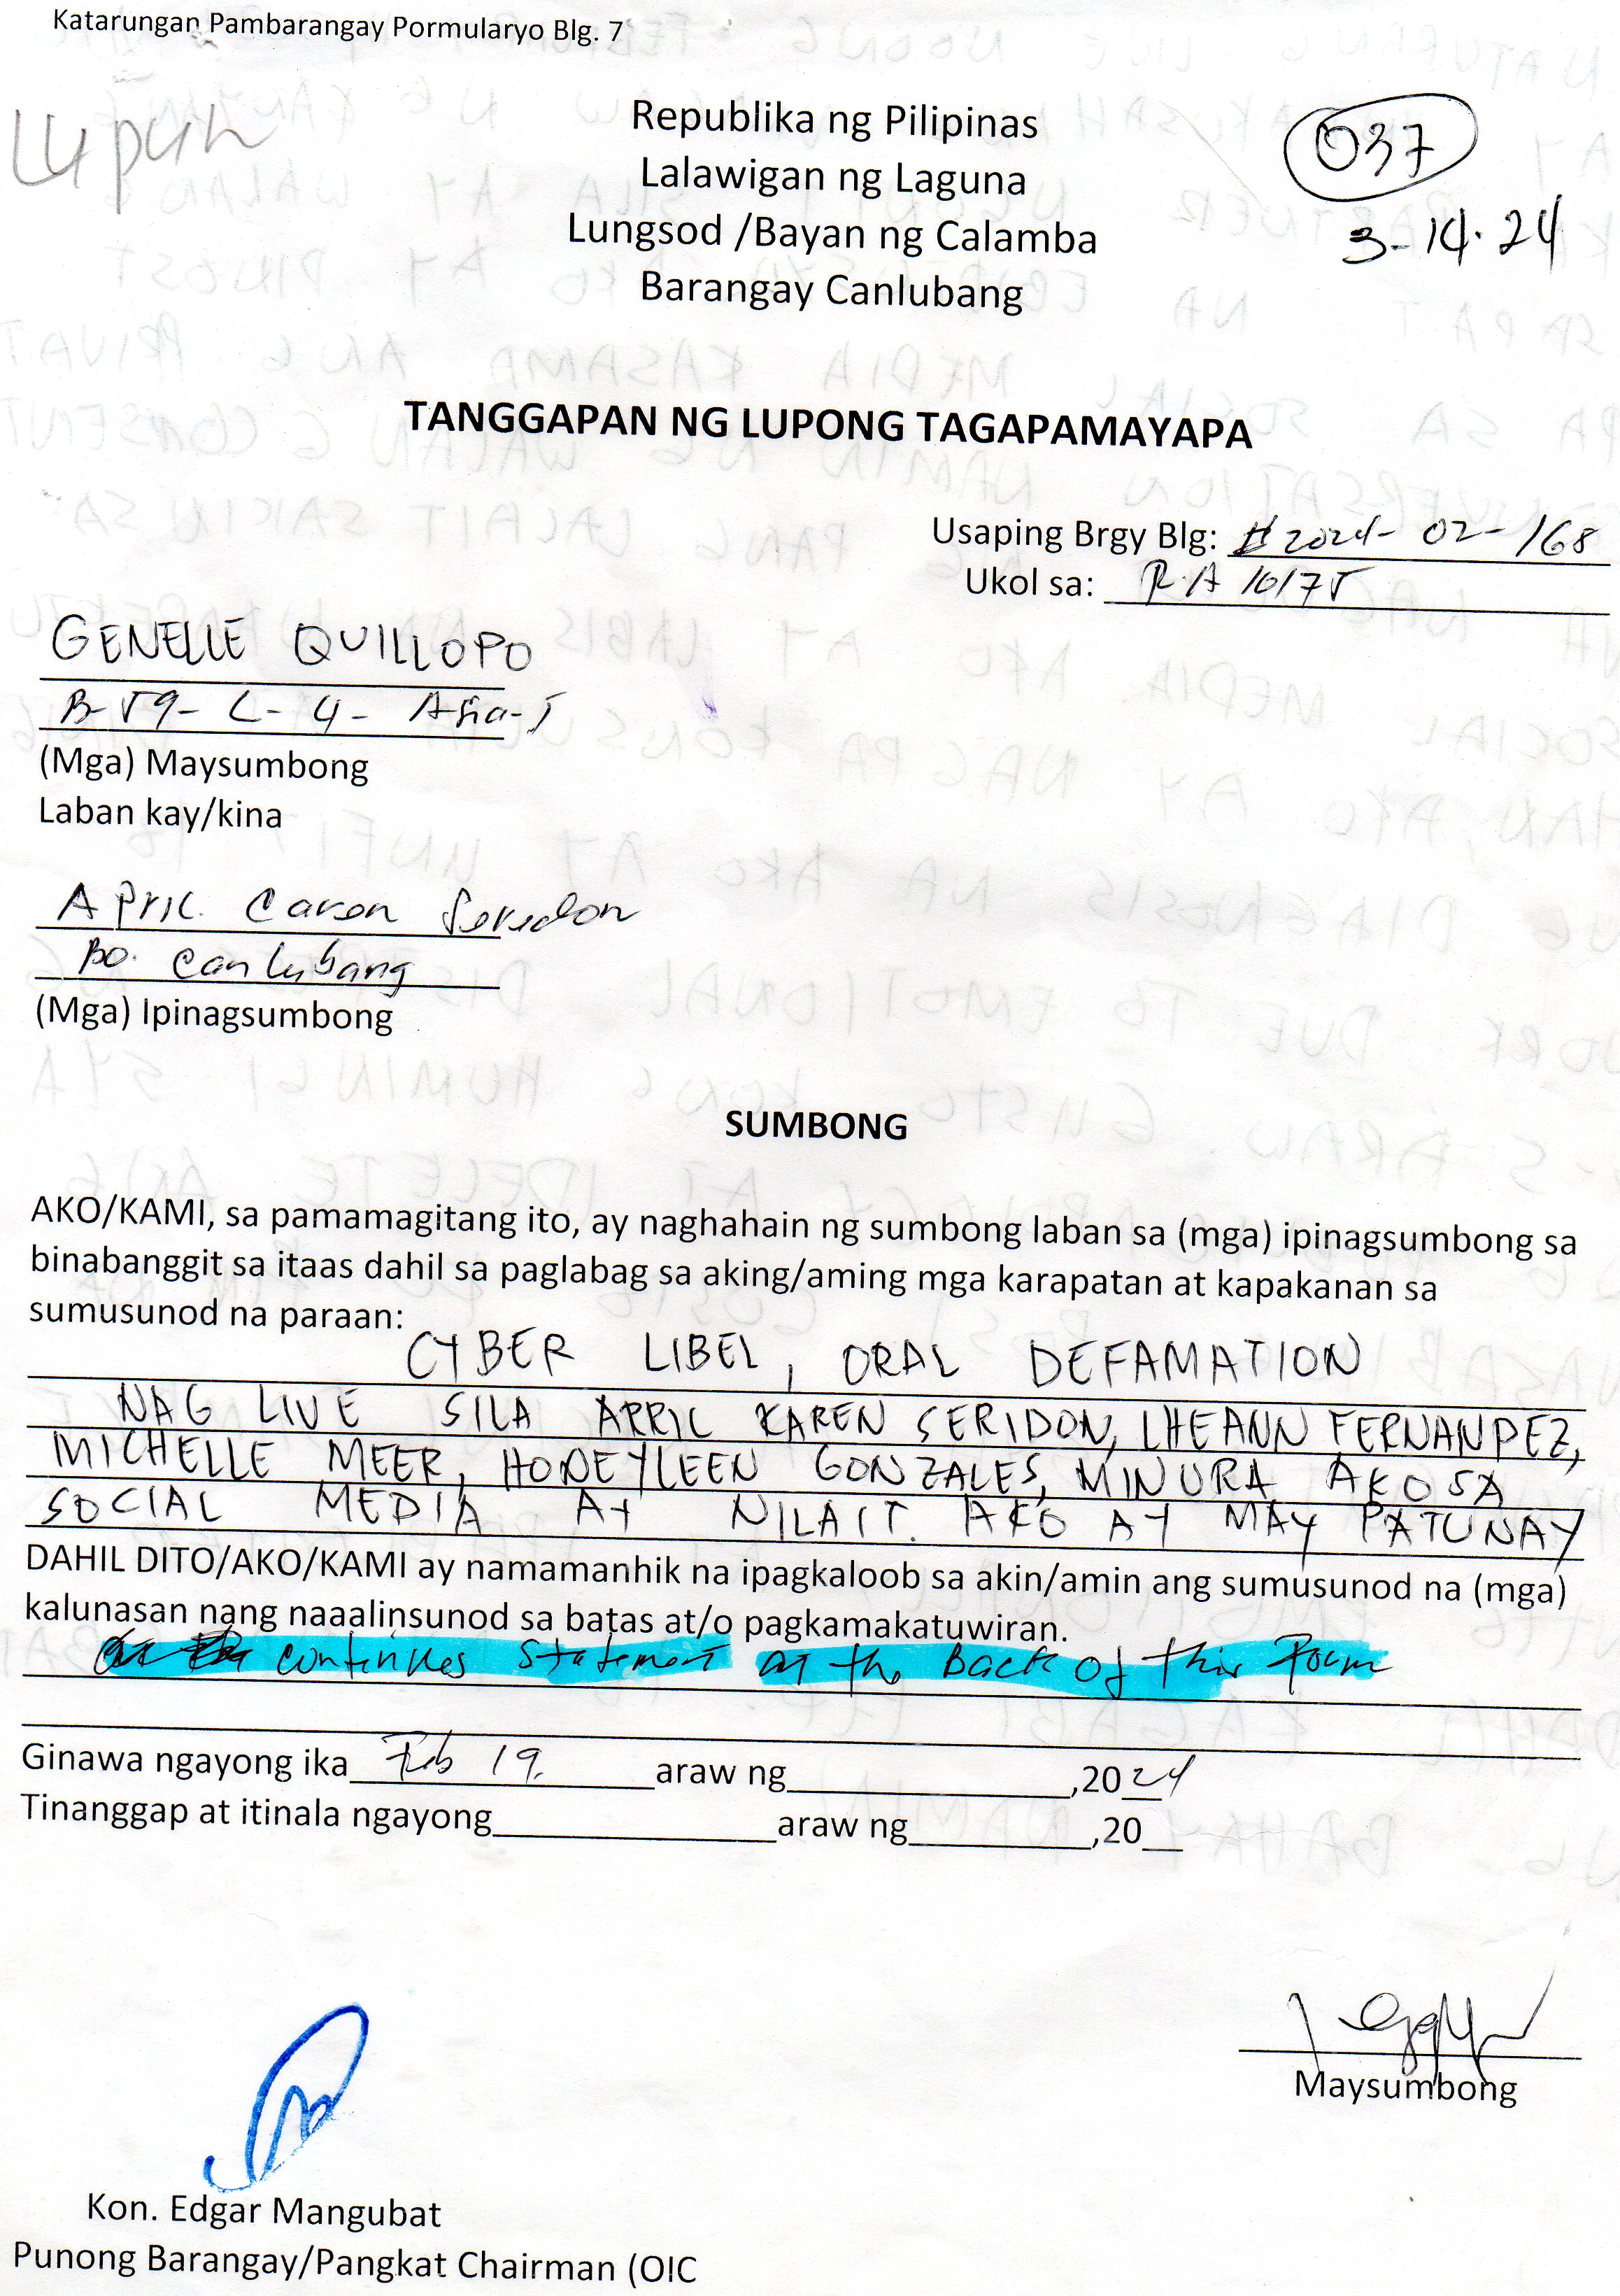 Katarungan Pambarangay Pormularyo Blg. 7
Lupun
Republika ng Pilipinas
037
Lalawigan ng Laguna
3-14-24
Lungsod /Bayan ng Calamba
Barangay Canlubang
TANGGAPAN NG LUPONG TAGAPAMAYAPA
Usaping Brgy Blg: #2024-02-168
Ukol sa: R.A 10175
GENELLE QUILLOPO
B-59-L-4- Asia-I
(Mga) Maysumbong
Laban kay/kina
April Caren Seridon
Bo. Canlubang
(Mga) Ipinagsumbong
SUMBONG
AKO/KAMI, sa pamamagitang ito, ay naghahain ng sumbong laban sa (mga) ipinagsumbong sa
binabanggit sa itaas dahil sa paglabag sa aking/aming mga karapatan at kapakanan sa
sumusunod na paraan:
CYBER LIBEL, ORAL DEFAMATION
NAG LIVE SILA APRIL KAREN SERIDON, LHEANN FERNANDEZ,
MICHELLE MEER, HONEYLEEN GONZALES, MINURA AKO SA
SOCIAL MEDIA AT NILAIT. AKO AY MAY PATUNAY
DAHIL DITO/AKO/KAMI ay namamanhik na ipagkaloob sa akin/amin ang sumusunod na (mga)
kalunasan nang naaalinsunod sa batas at/o pagkamakatuwiran.
continues statement at the Back of this Form
Ginawa ngayong ika Feb 19. araw ng ,2024
Tinanggap at itinala ngayong araw ng ,20
Maysumbong
Kon. Edgar Mangubat
Punong Barangay/Pangkat Chairman (OIC